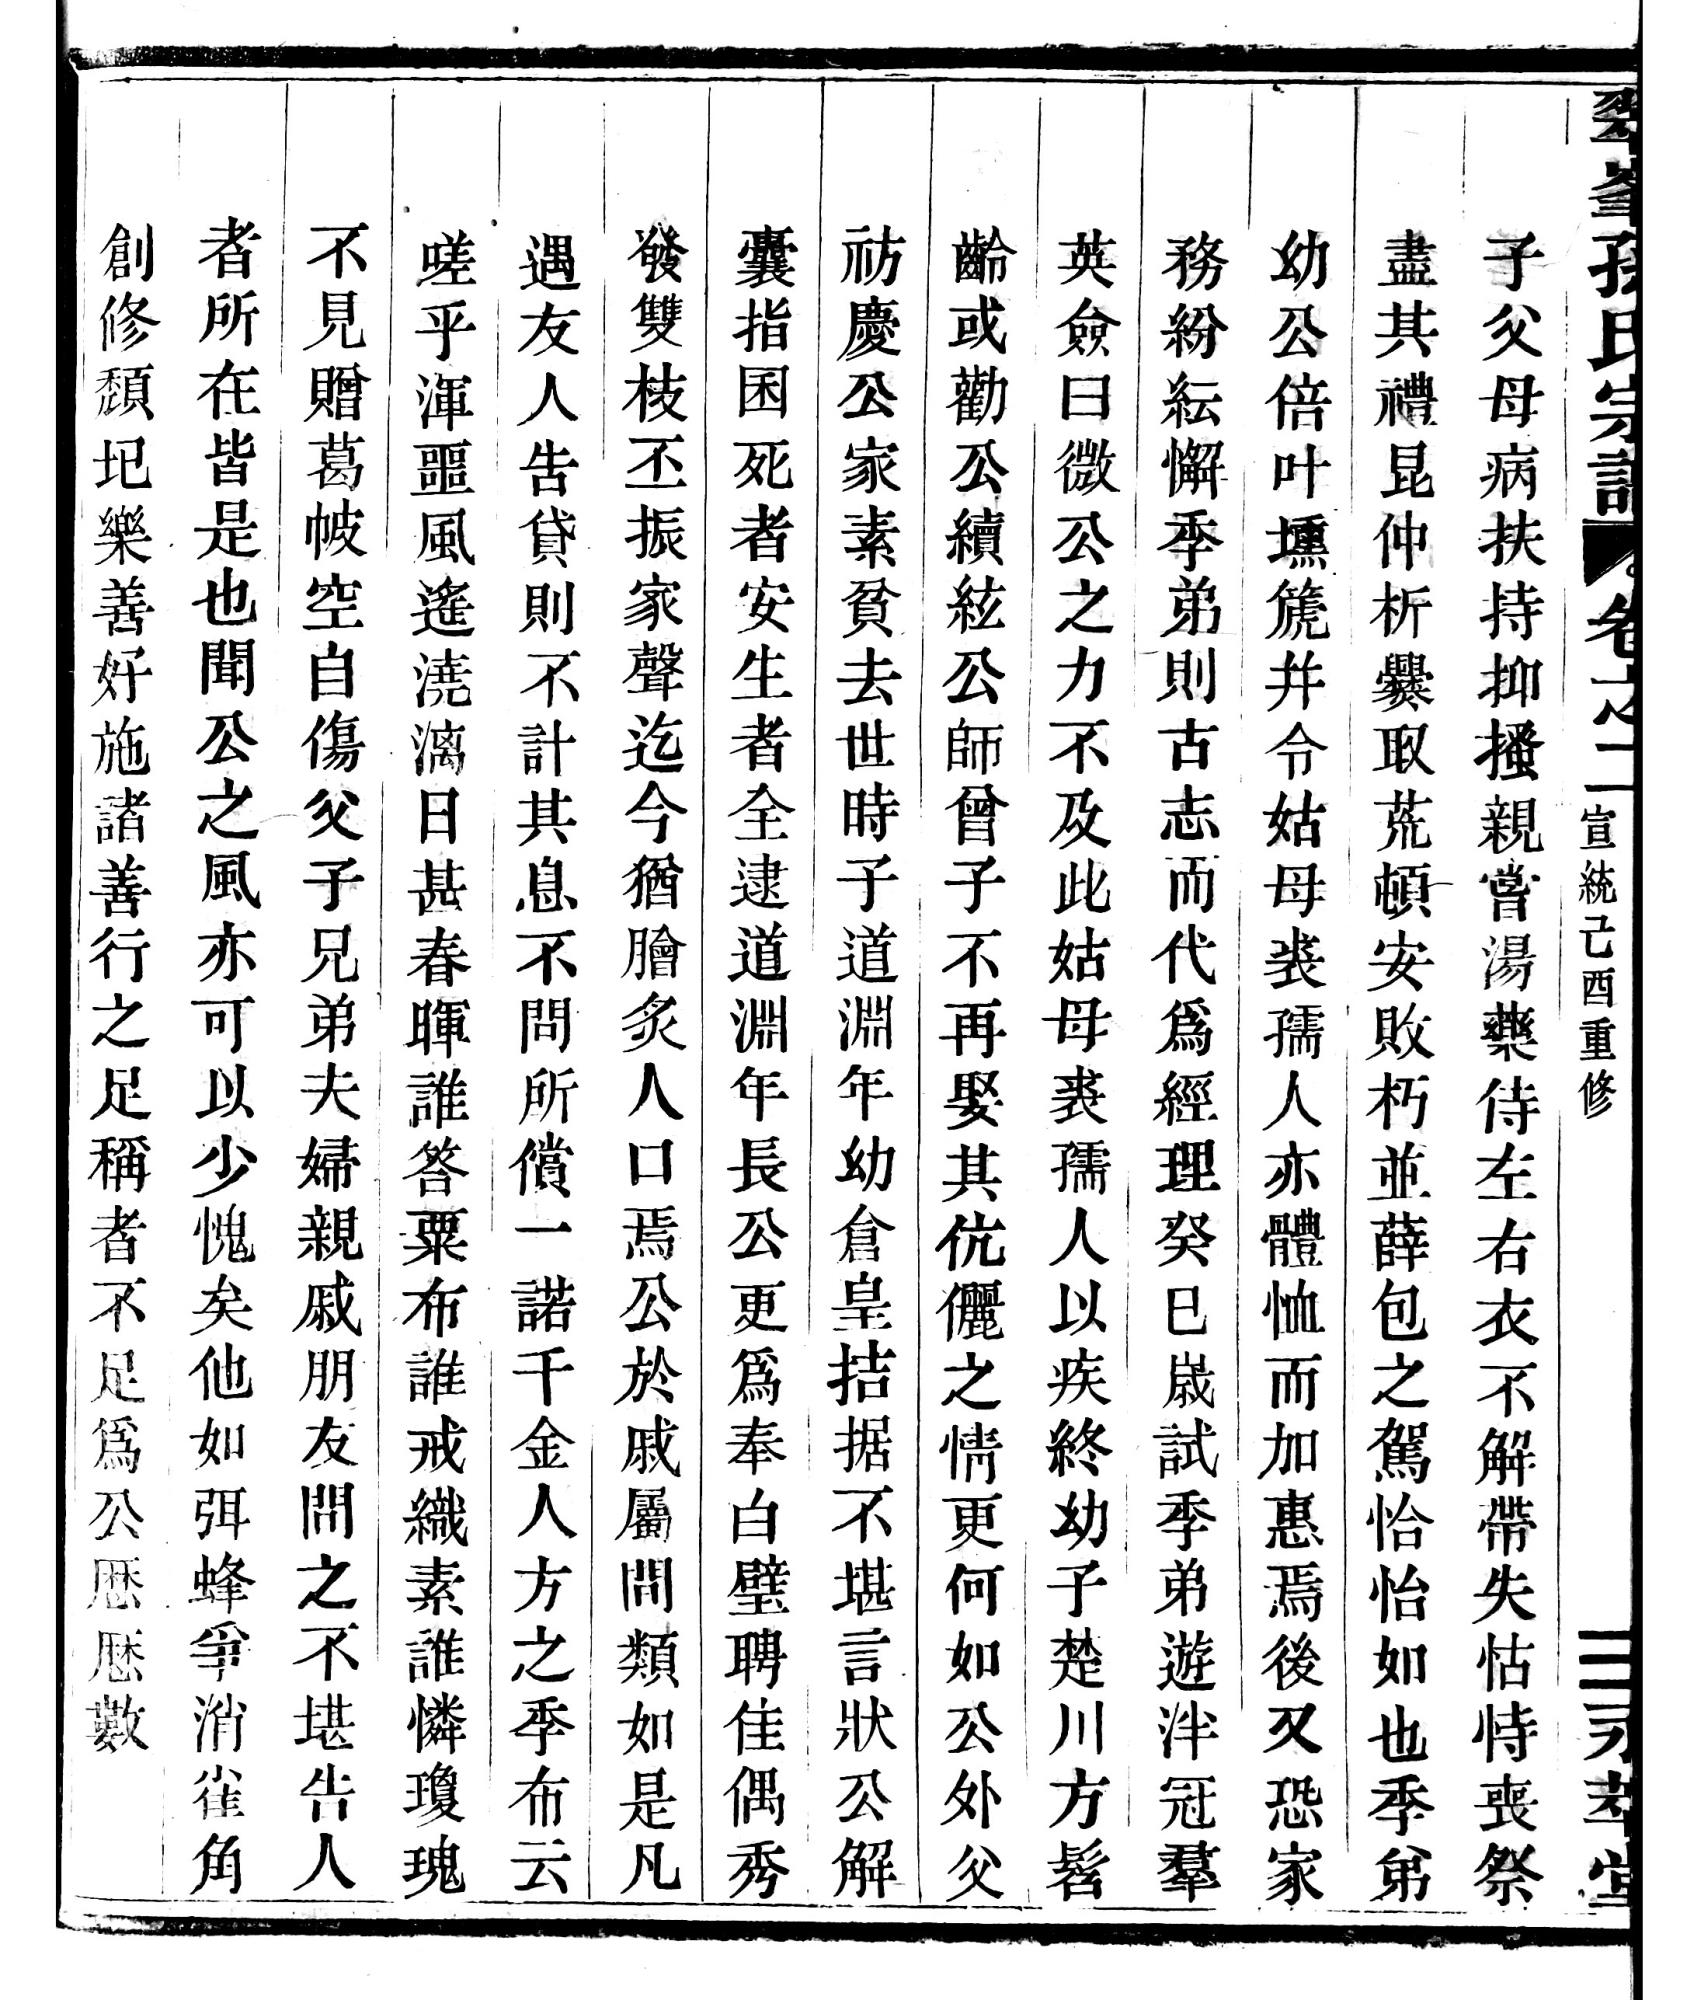 翠峯孫氏宗譜 卷之二 宣統己酉重修 三 永萃堂
子父母病扶持抑搔親嘗湯藥侍左右衣不解帶失怙恃喪祭
盡其禮昆仲析爨取荒頓安敗朽並薛包之駕恰怡如也季弟
幼公倍叶壎篪幷令姑母裘孺人亦體恤而加惠焉後又恐家
務紛紜懈季弟則古志而代爲經理癸巳歲試季弟遊泮冠羣
英僉曰微公之力不及此姑母裘孺人以疾終幼子楚川方髫
齡或勸公續絃公師曾子不再娶其伉儷之情更何如公外父
祊慶公家素貧去世時子道淵年幼倉皇拮据不堪言狀公解
囊指囷死者安生者全逮道淵年長公更爲奉白璧聘佳偶秀
發雙枝丕振家聲迄今猶膾炙人口焉公於戚屬間類如是凡
遇友人告貸則不計其息不問所償一諾千金人方之季布云
嗟乎渾噩風遙澆漓日甚春暉誰答粟布誰戒織素誰憐瓊瑰
不見贈葛帔空自傷父子兄弟夫婦親戚朋友間之不堪告人
者所在皆是也聞公之風亦可以少愧矣他如弭蜂爭消雀角
創修頹圯樂善好施諸善行之足稱者不足爲公厯厯數